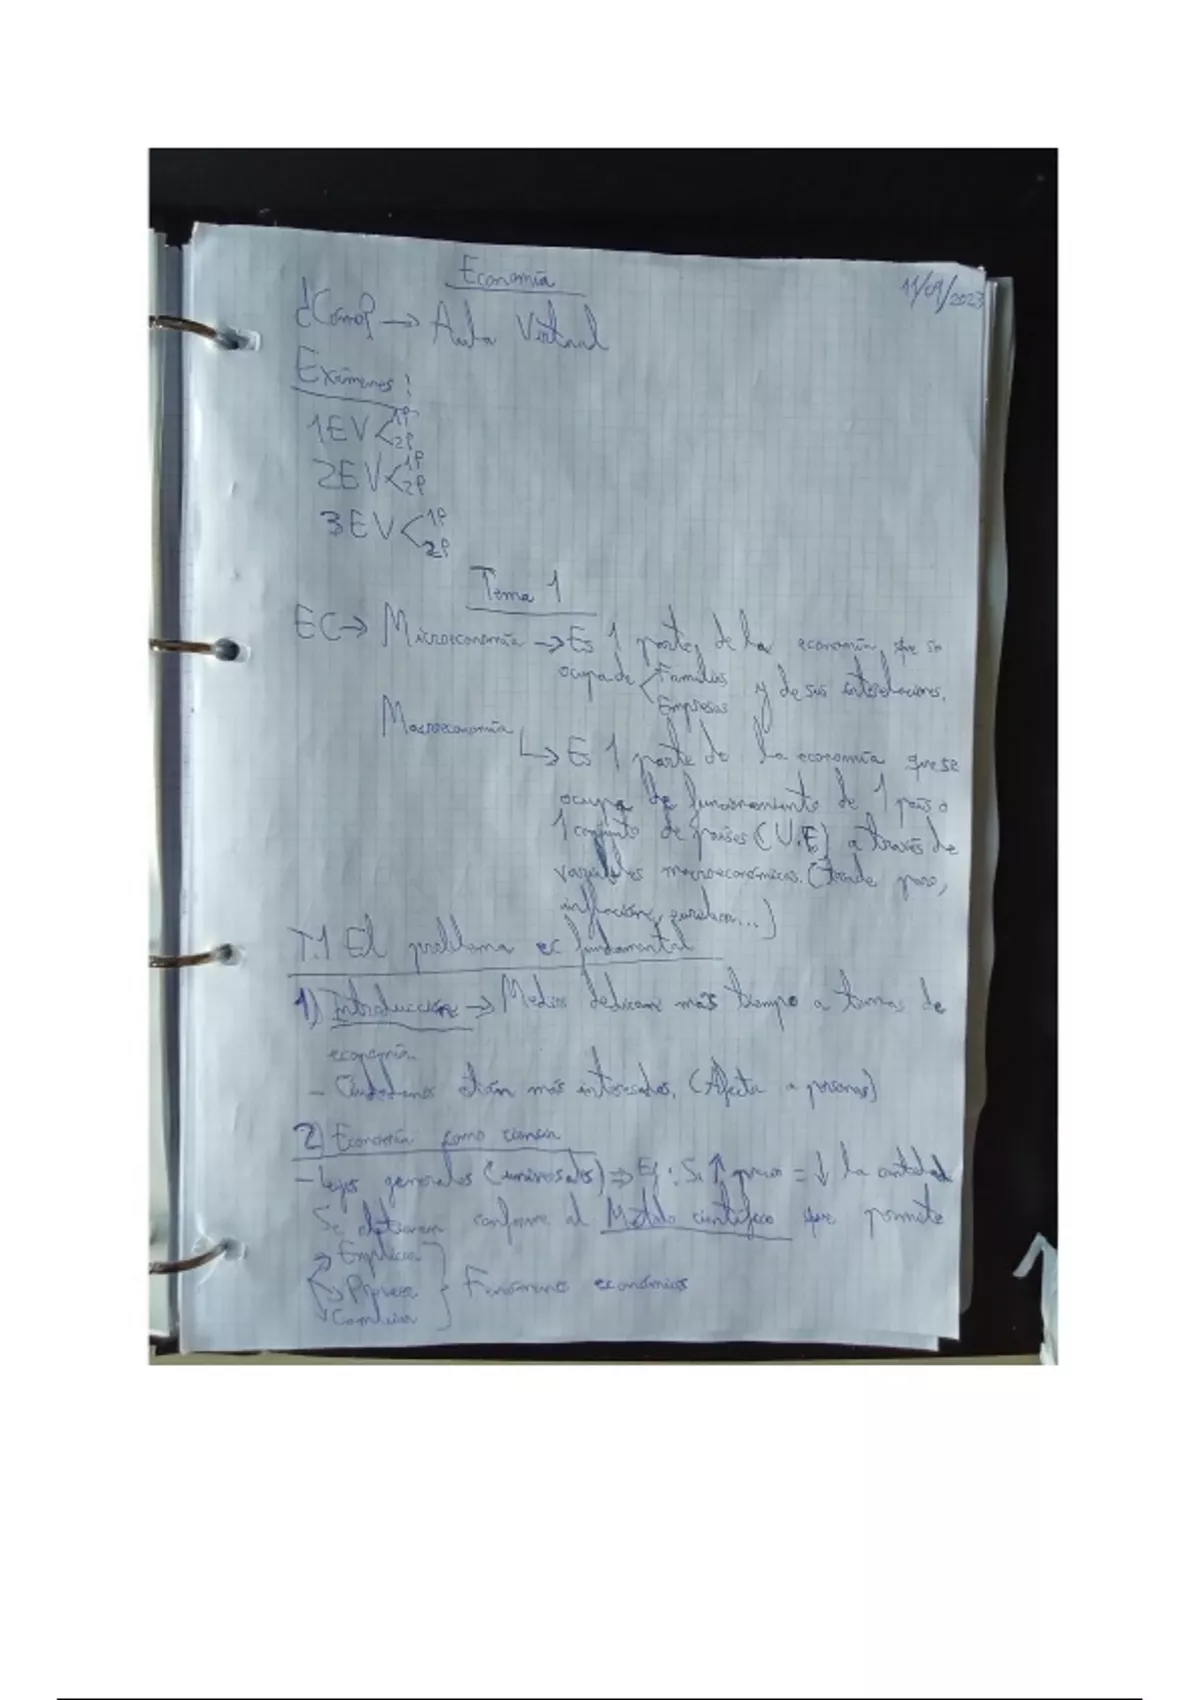 Economía
11/09/2023
¿Cómo? → Aula Virtual
Exámenes:
1EV < 1P 2P
2EV < 1P 2P
3EV < 1P 2P
Tema 1
EC → Microeconomía → Es 1 parte de la economía que se
ocupa de < Familias Empresas y de sus interrelaciones.
Macroeconomía
→ Es 1 parte de la economía que se
ocupa de funcionamiento de 1 país o
1 conjunto de países (U.E) a través de
variables macroeconómicas. (tasa de paro,
inflación, ...)
T.1 El problema ec fundamental
1) Introducción → Medios dedican más tiempo a temas de
economía.
- Ciudadanos están más interesados. (Afecta a personas)
2) Economía como ciencia
- Leyes generales (universales) ⇒ Ej: Si ↑ precio = ↓ la cantidad
Se obtienen conforme al Método científico que permite
→ Explicar
→ Prever } Fenómenos económicos
→ Cambiar